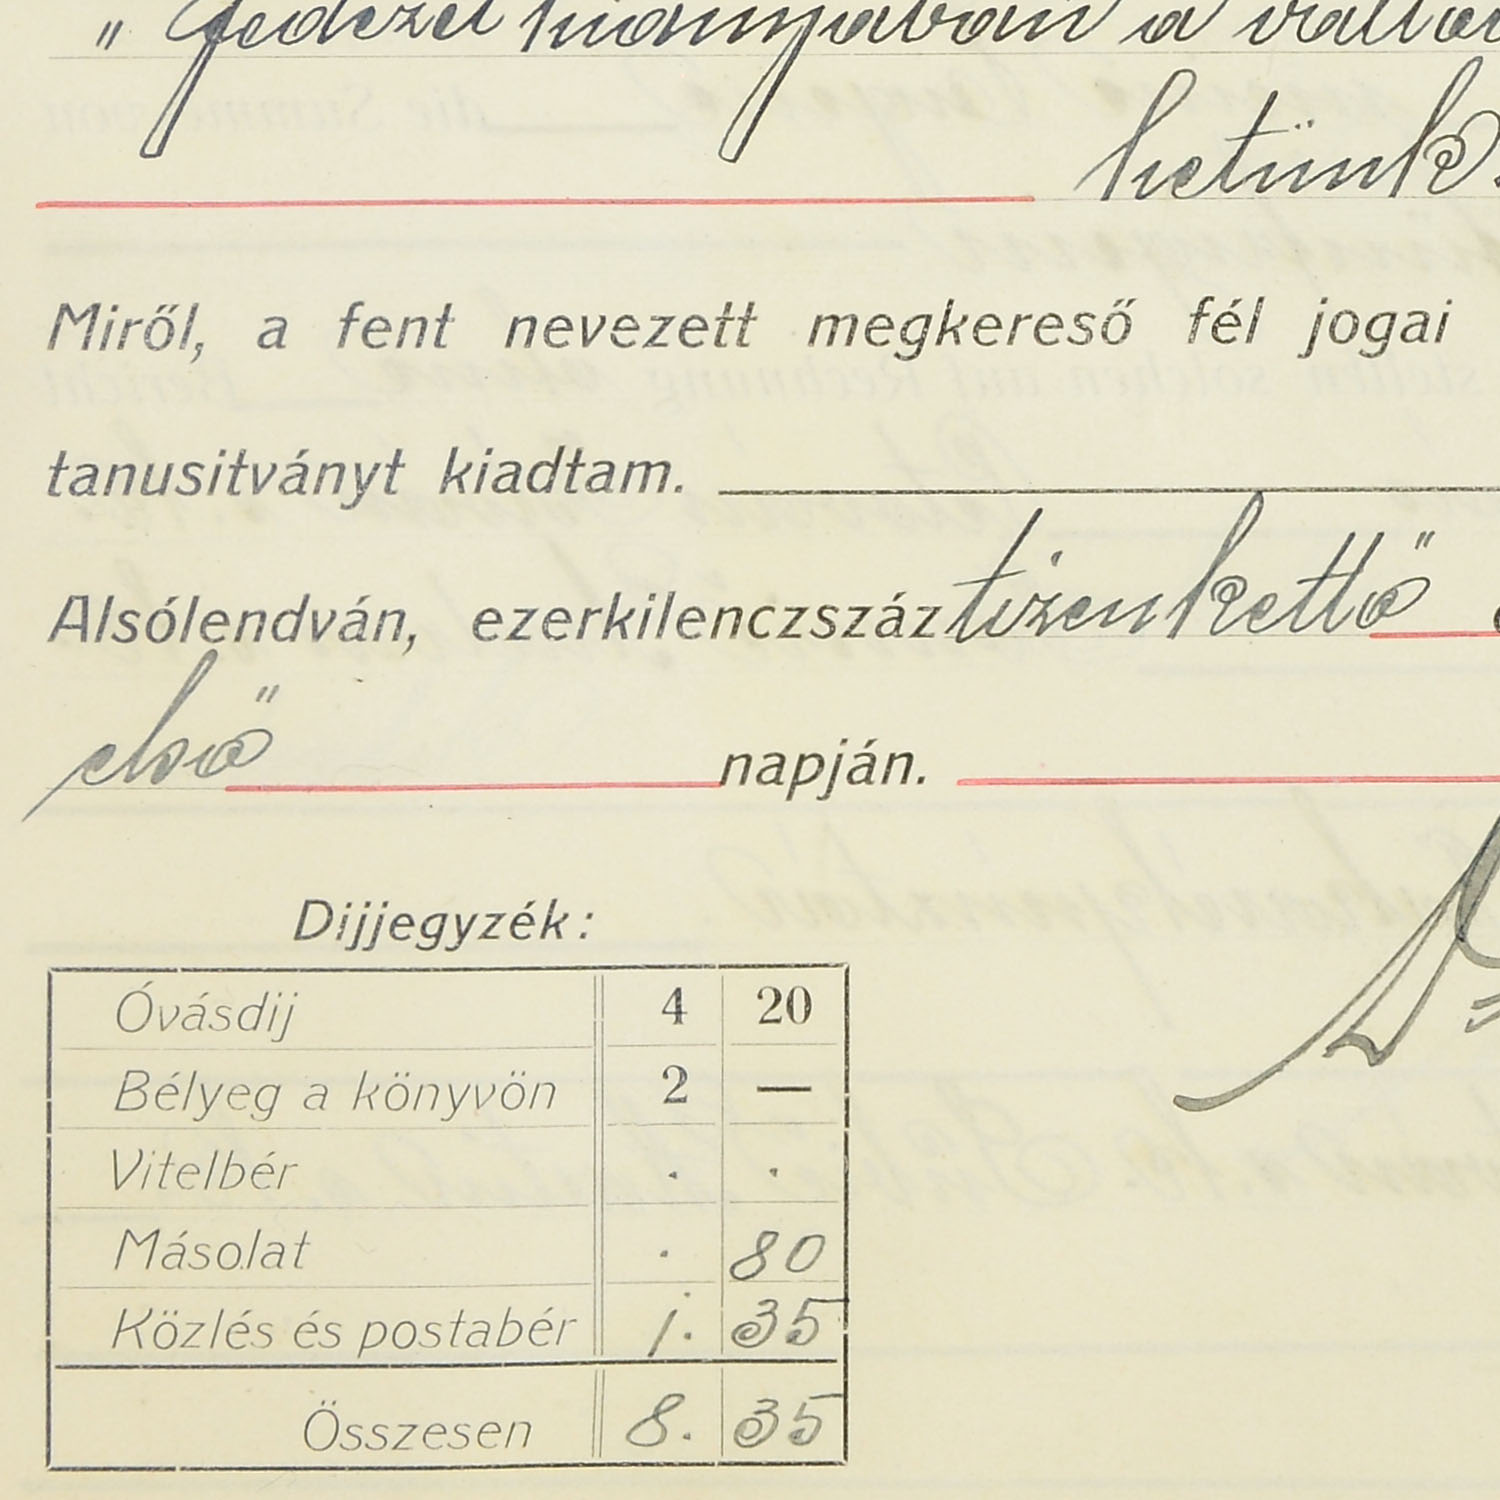 " fedezet hiányában a váltót
hetünk.
Miről, a fent nevezett megkereső fél jogai
tanusitványt kiadtam.
Alsólendván, ezerkilenczszáztizenkettő
első napján.
Dijjegyzék:
Óvásdij 4 20
Bélyeg a könyvön 2 —
Vitelbér . .
Másolat . 80
Közlés és postabér 1. 35
Összesen 8. 35